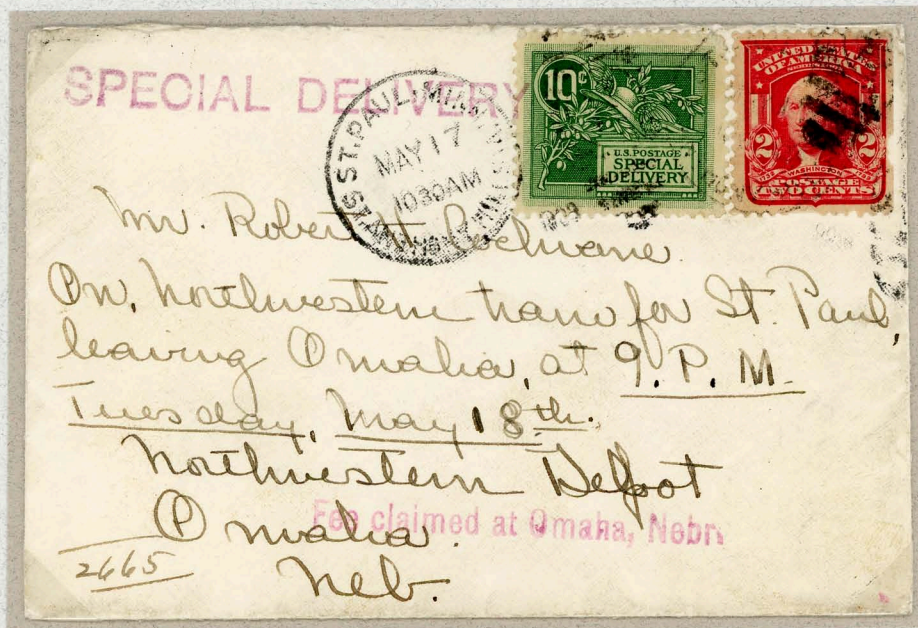 SPECIAL DELIVERY
ST. PAUL, MINN.
MAY 17
1030 AM
1909
10¢
U.S. POSTAGE
SPECIAL
DELIVERY
UNITED STATES
OF AMERICA
2 2
WASHINGTON
POSTAGE
TWO CENTS
Mr. Robert H. Cochrane.
On, Northwestern train for St. Paul,
leaving Omaha, at 9. P. M.
Tuesday, May 18th.
Northwestern Depot
Omaha.
Fee claimed at Omaha, Nebr.
2665
Neb.